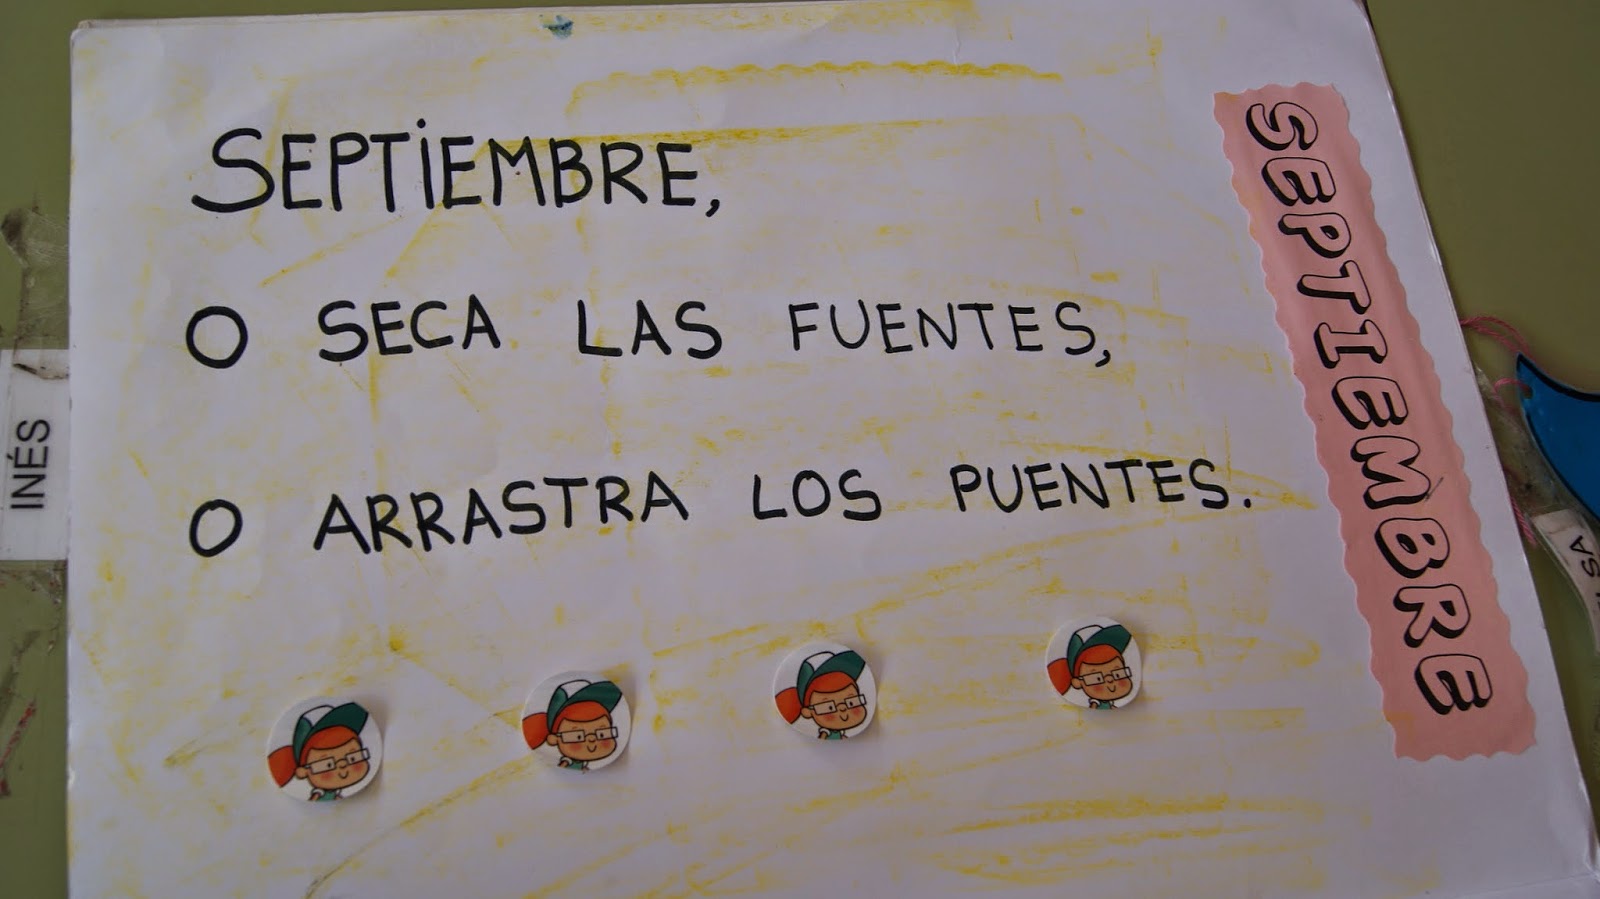 SEPTIEMBRE,
O SECA LAS FUENTES,
O ARRASTRA LOS PUENTES.
SEPTIEMBRE
INÉS